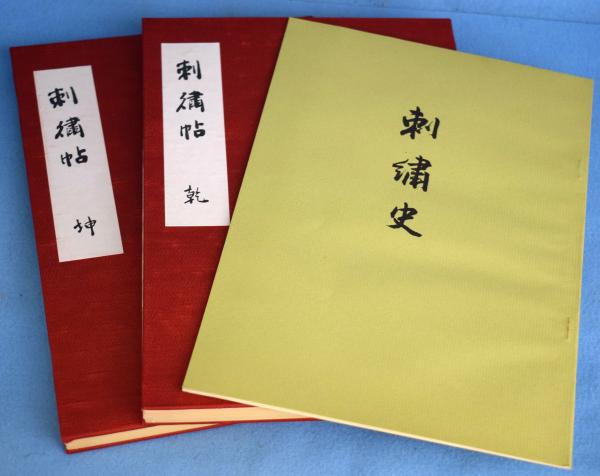 刺繍帖 坤
刺繍帖 乾
刺繍史